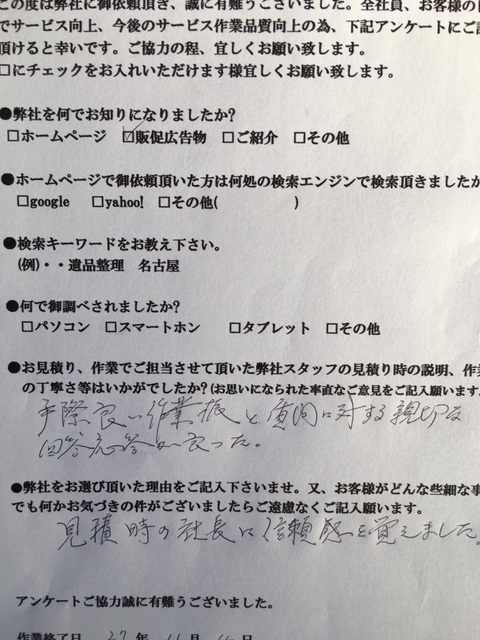 この度は弊社に御依頼頂き、誠に有難うございました。全社員、お客様の
でサービス向上、今後のサービス作業品質向上の為、下記アンケートにご
頂けると幸いです。ご協力の程、宜しくお願い致します。
□にチェックをお入れいただけます様宜しくお願い致します。
●弊社を何でお知りになりましたか?
□ホームページ ☑販促広告物 □ご紹介 □その他
●ホームページで御依頼頂いた方は何処の検索エンジンで検索頂きましたか
□google □yahoo! □その他( )
●検索キーワードをお教え下さい。
(例)・・遺品整理 名古屋
●何で御調べされましたか?
□パソコン □スマートホン □タブレット □その他
●お見積り、作業でご担当させて頂いた弊社スタッフの見積り時の説明、作
の丁寧さ等はいかがでしたか?(お思いになられた率直なご意見をご記入願います
手際良い作業振と質問に対する親切な
回答応答が良った。
●弊社をお選び頂いた理由をご記入下さいませ。又、お客様がどんな些細な事
でも何かお気づきの件がございましたらご遠慮なくご記入願います。
見積時の社長に信頼感を覚えました。
アンケートご協力誠に有難うございました。
作業終了日 27年 11月